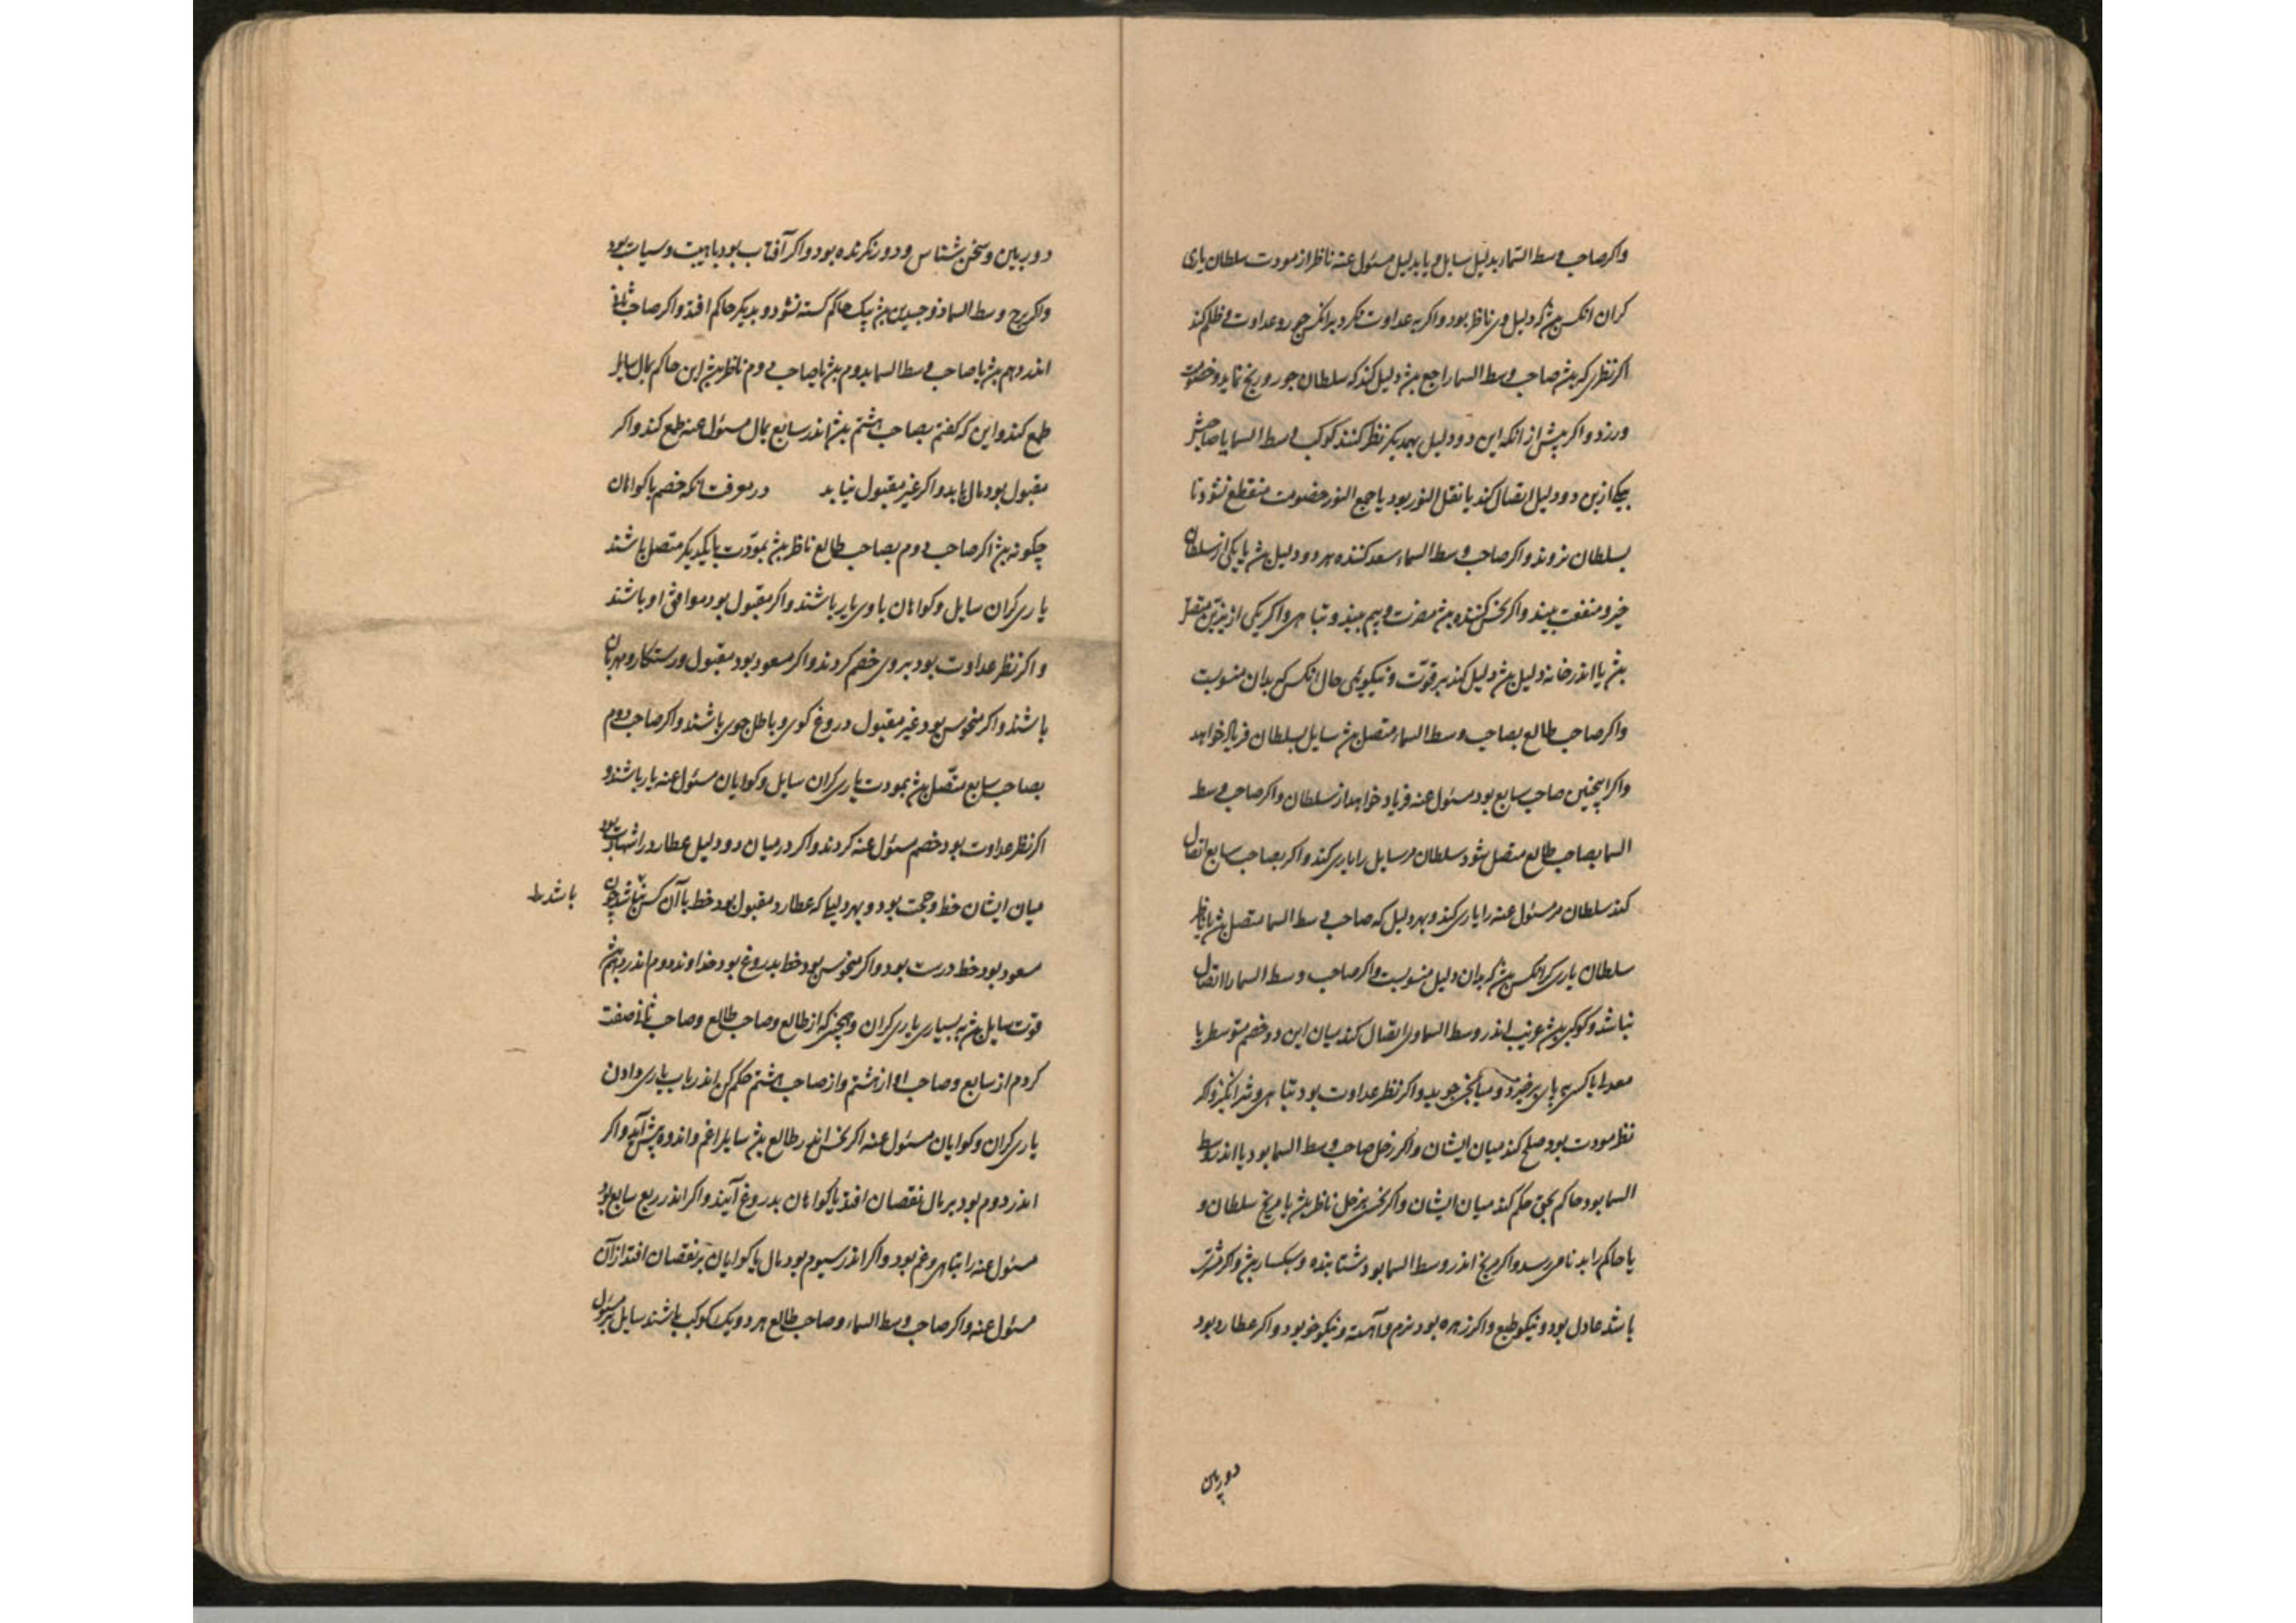 واکر صاحب وسط السماء بدلیل سایل و یا بدلیل مسئول عنه ناظر از مودت سلطان یاری
کران انکس بود که دلیل وی ناظر بود واکر به عداوت نکرد بر انکس جور و عداوت و ظلم کند
اکر نظری که بود صاحب وسط السما راجع بود دلیل کند که سلطان جور و رنج نماید و خصومت
ورزد واکر پیش از انکه این دو دلیل بهمدیکر نظر کنند کوکب وسط السما یا صاحبش
بیکی ازین دو دلیل اتصال کند یا نقل النور بود یا جمع النور خصومت منقطع نشود تا
بسلطان نروند واکر صاحب وسط السماء سعد کننده هر دو دلیل بود یا یکی از سلطان
خیر و منفعت بیند واکر نحس کننده بود مضرت و بیم بیند و تباهی واکر یکی از نیرین متصل
بود یا اندر خانه دلیل بود دلیل کند بر قوّت و نیکویی حال انکس که بدان منسوبست
واکر صاحب طالع بصاحب وسط السماء متصل بود سایل بسلطان فریاد خواهد
واکر اینچنین صاحب سابع بود مسئول عنه فریاد خواهد از سلطان واکر صاحب وسط
السما بصاحب طالع متصل شود سلطان مر سایل را یاری کند واکر بصاحب سابع اتصال
کند سلطان مر مسئول عنه را یاری کند و بهر دلیل که صاحب وسط السما متصل بود یا ناظر
سلطان یاری کر انکس بود که بدان دلیل منسوبست واکر صاحب وسط السما را اتصال
نباشد و کوکبی بود غریب اندر وسط السما و وی اتصال کند میان این دو خصم متوسط یا
معدل یا کسی بپای برخیزد و میانجی جوید واکر نظر عداوت بود تباهی و شر انکیزد واکر
نظر مودت بود صلح کند میان ایشان واکر زحل صاحب وسط السما بود یا اندر وسط
السما بود حاکم بحق حکم کند میان ایشان واکر نحس بزحل ناظر بود یا مریخ سلطان و
یا حاکم را بدنامی رسد واکر مریخ اندر وسط السما بود شتابنده و سبکسار بود واکر مشتری
باشد عادل بود و نیکو طبع واکر زهره بود نرم و آهسته و نیکو خو بود واکر عطارد بود
دوربین
دوربین و سخن شناس و دور نکرنده بود واکر آفتاب بود با هیبت و سیاست بود
واکر برج وسط السماء ذو جسدین بود بیک حاکم کسته نشود و بدیکر حاکم افتد واکر صاحب ثانی
اندر دهم بود یا صاحب وسط السما بدوم بود یا صاحب دوم ناظر بود این حاکم بمال سایل
طمع کند و این که کفتم بصاحب هشتم بود اندر سابع بمال مسئول عنه طمع کند واکر
مقبول بود مال یابد واکر غیر مقبول نیابد در معرفت انکه خصم با کواهان
چکونه بود اکر صاحب دوم بصاحب طالع ناظر بود بمودّت با یکدیکر متصل باشند
یاری کران سایل و کواهان با وی یار باشند واکر مقبول بود موافق او باشند
واکر نظر عداوت بود بروی خصم کردند واکر مسعود بود مقبول و رستکار و مهربان
باشند واکر منحوس بود غیر مقبول دروغ کوی و باطل جوی باشند واکر صاحب دوم
بصاحب سابع متّصل بود بمودت یاری کران سایل و کوایان مسئول عنه یار باشند و
اکر نظر عداوت بود خصم مسئول عنه کردند واکر در میان دو دلیل عطارد را شهادت بود
میان ایشان خط و حجت بود و بهر دلیل که عطارد مقبول بود خط با آن کس نباشد چون
باشد ط
مسعود بود خط درست بود واکر منحوس بود خط بدروغ بود خداوند دوم اندر دهم بود
قوت سایل بود به بسیاری یاری کران و همچنین که از طالع و صاحب طالع و صاحب ثانی صفت
کردم از سابع و صاحب او از هشتم و از صاحب هشتم حکم کن اندر باب یاری دادن
یاری کران و کوایان مسئول عنه اکر نحس اندر طالع بود سایل را غم و اندوه پیش آید واکر
اندر دوم بود بر مال نقصان افتد یا کواهان بدروغ آیند واکر اندر ربع سابع بود
مسئول عنه را تباهی و غم بود واکر اندر سیوم بود مال یا کوایان بر نقصان افتد از آن
مسئول عنه واکر صاحب وسط السماء و صاحب طالع هر دو یک کوکب باشند سایل بر مسئول